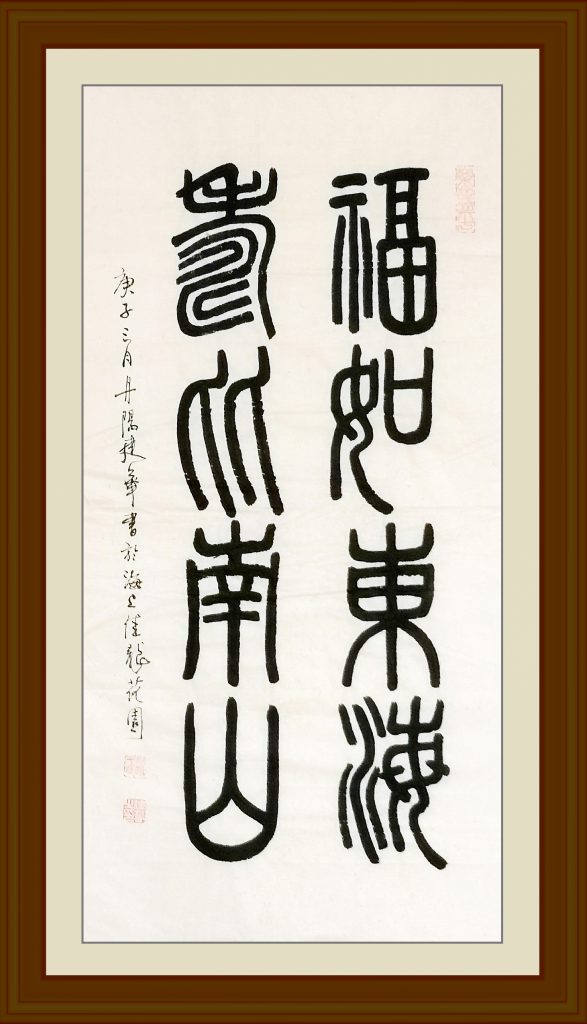 福如東海
壽比南山
庚子三月丹陽捷書於海上佳龍花園